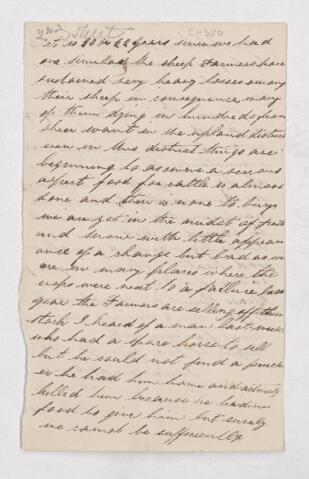 2nd Sheet CH380
it is 20 or 22 years since we had
one similar the sheep Farmers have
sustained very heavy losses among
their sheep in consequence many
of them dying in hundreds from
sheer want in the upland district
even in this district things are
beginning to assume a serious
aspect food for cattle is almost
done and their is none to buy
we are yet in the midst of frost
and snow with little appear
ance of a change but bad as we
are in many places where the
crops were next to a failure last
year the Farmers are selling off their
stock I heard of a man last week
who had a spare horse to sell
but he could not find a purch
er he had him home and actually
killed him because he had no
food to give him but surely
we cannot be sufficiently